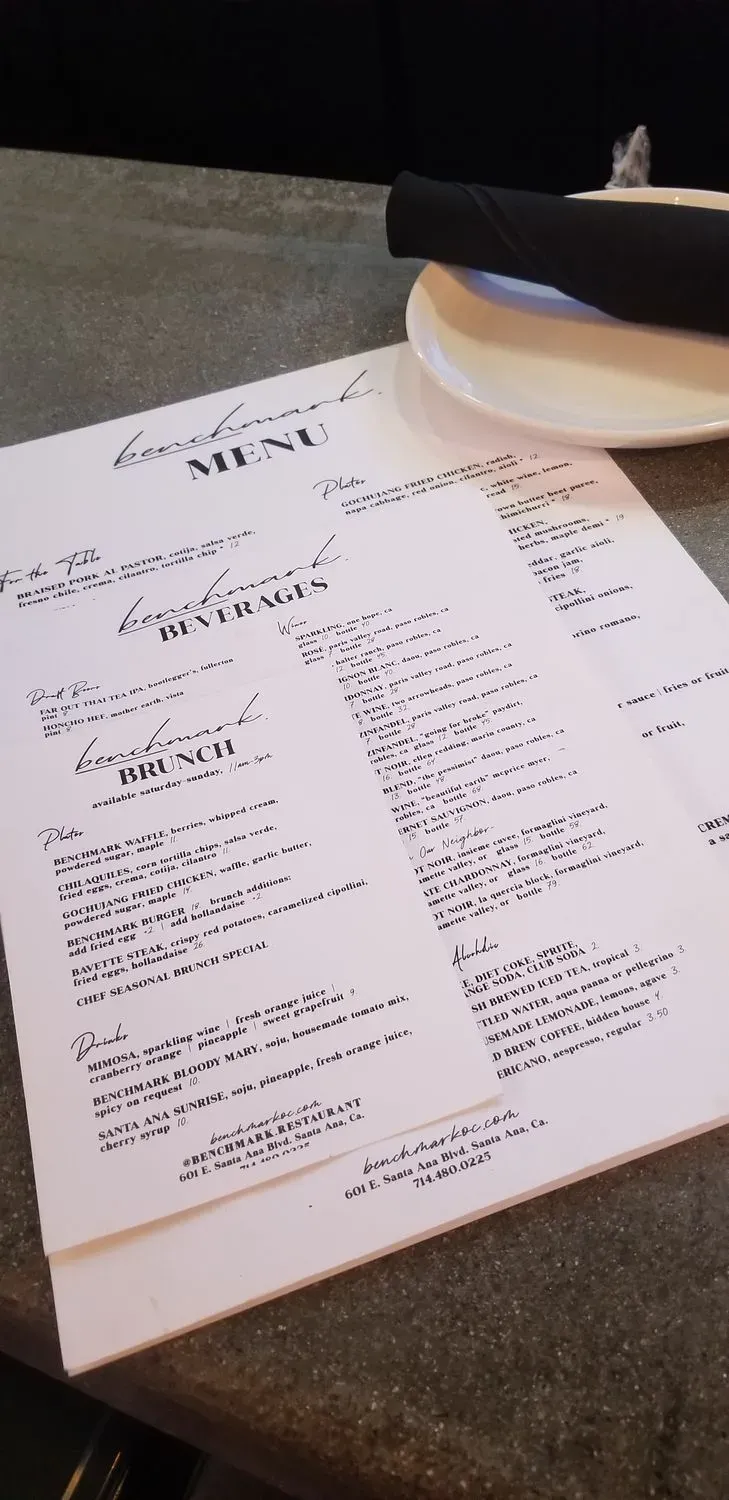 benchmark.
MENU
For the Table
BRAISED PORK AL PASTOR, cotija, salsa verde,
fresno chile, crema, cilantro, tortilla chip * 12
Plates
GOCHUJANG FRIED CHICKEN, radish,
napa cabbage, red onion, cilantro, aioli * 12.
, white wine, lemon,
read 15.
own butter beet puree,
himichurri * 18.
HICKEN,
ted mushrooms,
herbs, maple demi * 19
ddar, garlic aioli,
bacon jam,
fries 18.
STEAK,
cipollini onions,
orino romano,
r sauce | fries or fruit
or fruit,
benchmark.
BEVERAGES
Draft Beers
FAR OUT THAI TEA IPA, bootlegger's, fullerton
pint 8
HONCHO HEF, mother earth, vista
pint 8
Wines
SPARKLING, one hope, ca
glass 10. bottle 40.
ROSÉ, paris valley road, paso robles, ca
glass 7. bottle 28
halter ranch, paso robles, ca
12. bottle 45.
IGNON BLANC, daou, paso robles, ca
10. bottle 40.
DONNAY, paris valley road, paso robles, ca
7. bottle 28
TE WINE, two arrowheads, paso robles, ca
8. bottle 32.
ZINFANDEL, paris valley road, paso robles, ca
7. bottle 28
ZINFANDEL, "going for broke" paydirt,
robles, ca glass 12. bottle 45.
T NOIR, ellen redding, marin county, ca
16. bottle 64
BLEND, "the pessimist" daou, paso robles, ca
13. bottle 48
WINE, "beautiful earth" mcprice myer,
robles, ca bottle 68.
ERNET SAUVIGNON, daou, paso robles, ca
15. bottle 57.
Our Neighbor
OT NOIR, insieme cuvee, formaglini vineyard,
amette valley, or glass 15. bottle 58.
ATE CHARDONNAY, formaglini vineyard,
amette valley, or glass 16. bottle 62.
OT NOIR, la quercia block, formaglini vineyard,
amette valley, or bottle 79.
Alcoholic
E, DIET COKE, SPRITE,
NGE SODA, CLUB SODA 2.
SH BREWED ICED TEA, tropical 3.
TLED WATER, aqua panna or pellegrino 3.
USEMADE LEMONADE, lemons, agave 3.
D BREW COFFEE, hidden house 4.
ERICANO, nespresso, regular 3.50
benchmarkoc.com
601 E. Santa Ana Blvd. Santa Ana, Ca.
714.480.0225
benchmark.
BRUNCH
available saturday-sunday, 11am-3pm
Plates
BENCHMARK WAFFLE, berries, whipped cream,
powdered sugar, maple 11.
CHILAQUILES, corn tortilla chips, salsa verde,
fried eggs, crema, cotija, cilantro 11.
GOCHUJANG FRIED CHICKEN, waffle, garlic butter,
powdered sugar, maple 14.
BENCHMARK BURGER 18. brunch additions:
add fried egg +2. | add hollandaise +2.
BAVETTE STEAK, crispy red potatoes, caramelized cipollini,
fried eggs, hollandaise 26
CHEF SEASONAL BRUNCH SPECIAL
Drinks
MIMOSA, sparkling wine | fresh orange juice |
cranberry orange | pineapple | sweet grapefruit 9.
BENCHMARK BLOODY MARY, soju, housemade tomato mix,
spicy on request 10.
SANTA ANA SUNRISE, soju, pineapple, fresh orange juice,
cherry syrup 10.
benchmarkoc.com
@BENCHMARK.RESTAURANT
601 E. Santa Ana Blvd. Santa Ana, Ca.
714.480.0225